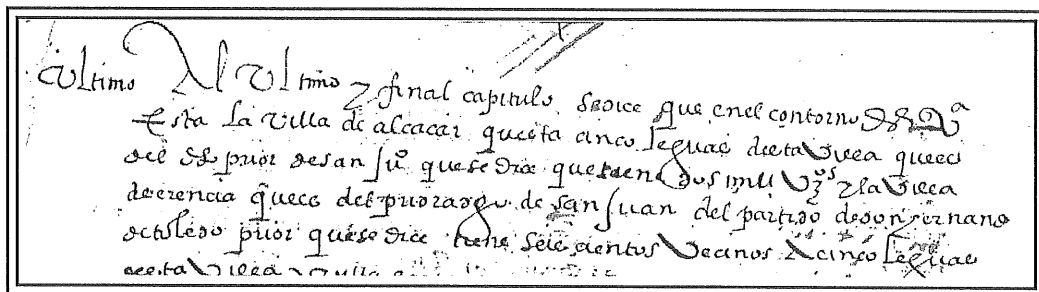 Ultimo Al Ultimo y final capitulo se dice que en el contorno desta Va
Esta la villa de alcaçar questa cinco leguas desta Villa ques
del prior de san Juo que se dice que tiene dos mill Vzos y la Villa
de erencia ques del priorazgo de san Juan del partido de don fernando
de toledo prior que se dice tiene seiscientos Vecinos A cinco leguas
desta Villa